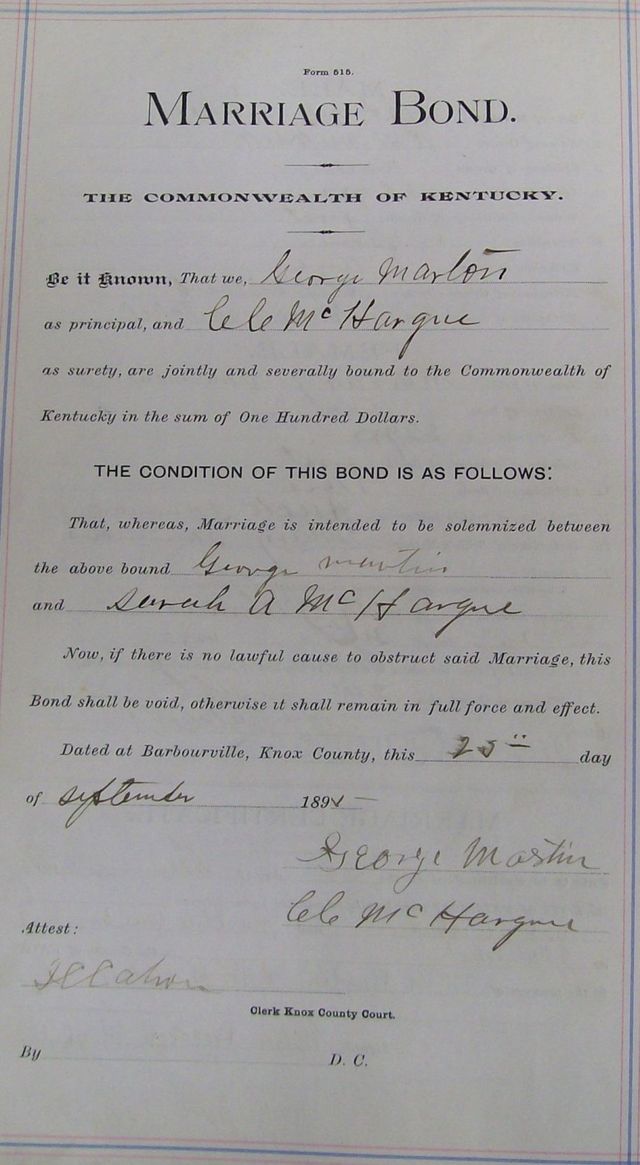 Form 515.
MARRIAGE BOND.
THE COMMONWEALTH OF KENTUCKY.
Be it Known, That we, George Martin
as principal, and McHargue
as surety, are jointly and severally bound to the Commonwealth of
Kentucky in the sum of One Hundred Dollars.
THE CONDITION OF THIS BOND IS AS FOLLOWS:
That, whereas, Marriage is intended to be solemnized between
the above bound George martin
and Sarah A McHargue
Now, if there is no lawful cause to obstruct said Marriage, this
Bond shall be void, otherwise it shall remain in full force and effect.
Dated at Barbourville, Knox County, this 25 day
of September 189
George Martin
McHargue
Attest:
Clerk Knox County Court.
By D. C.